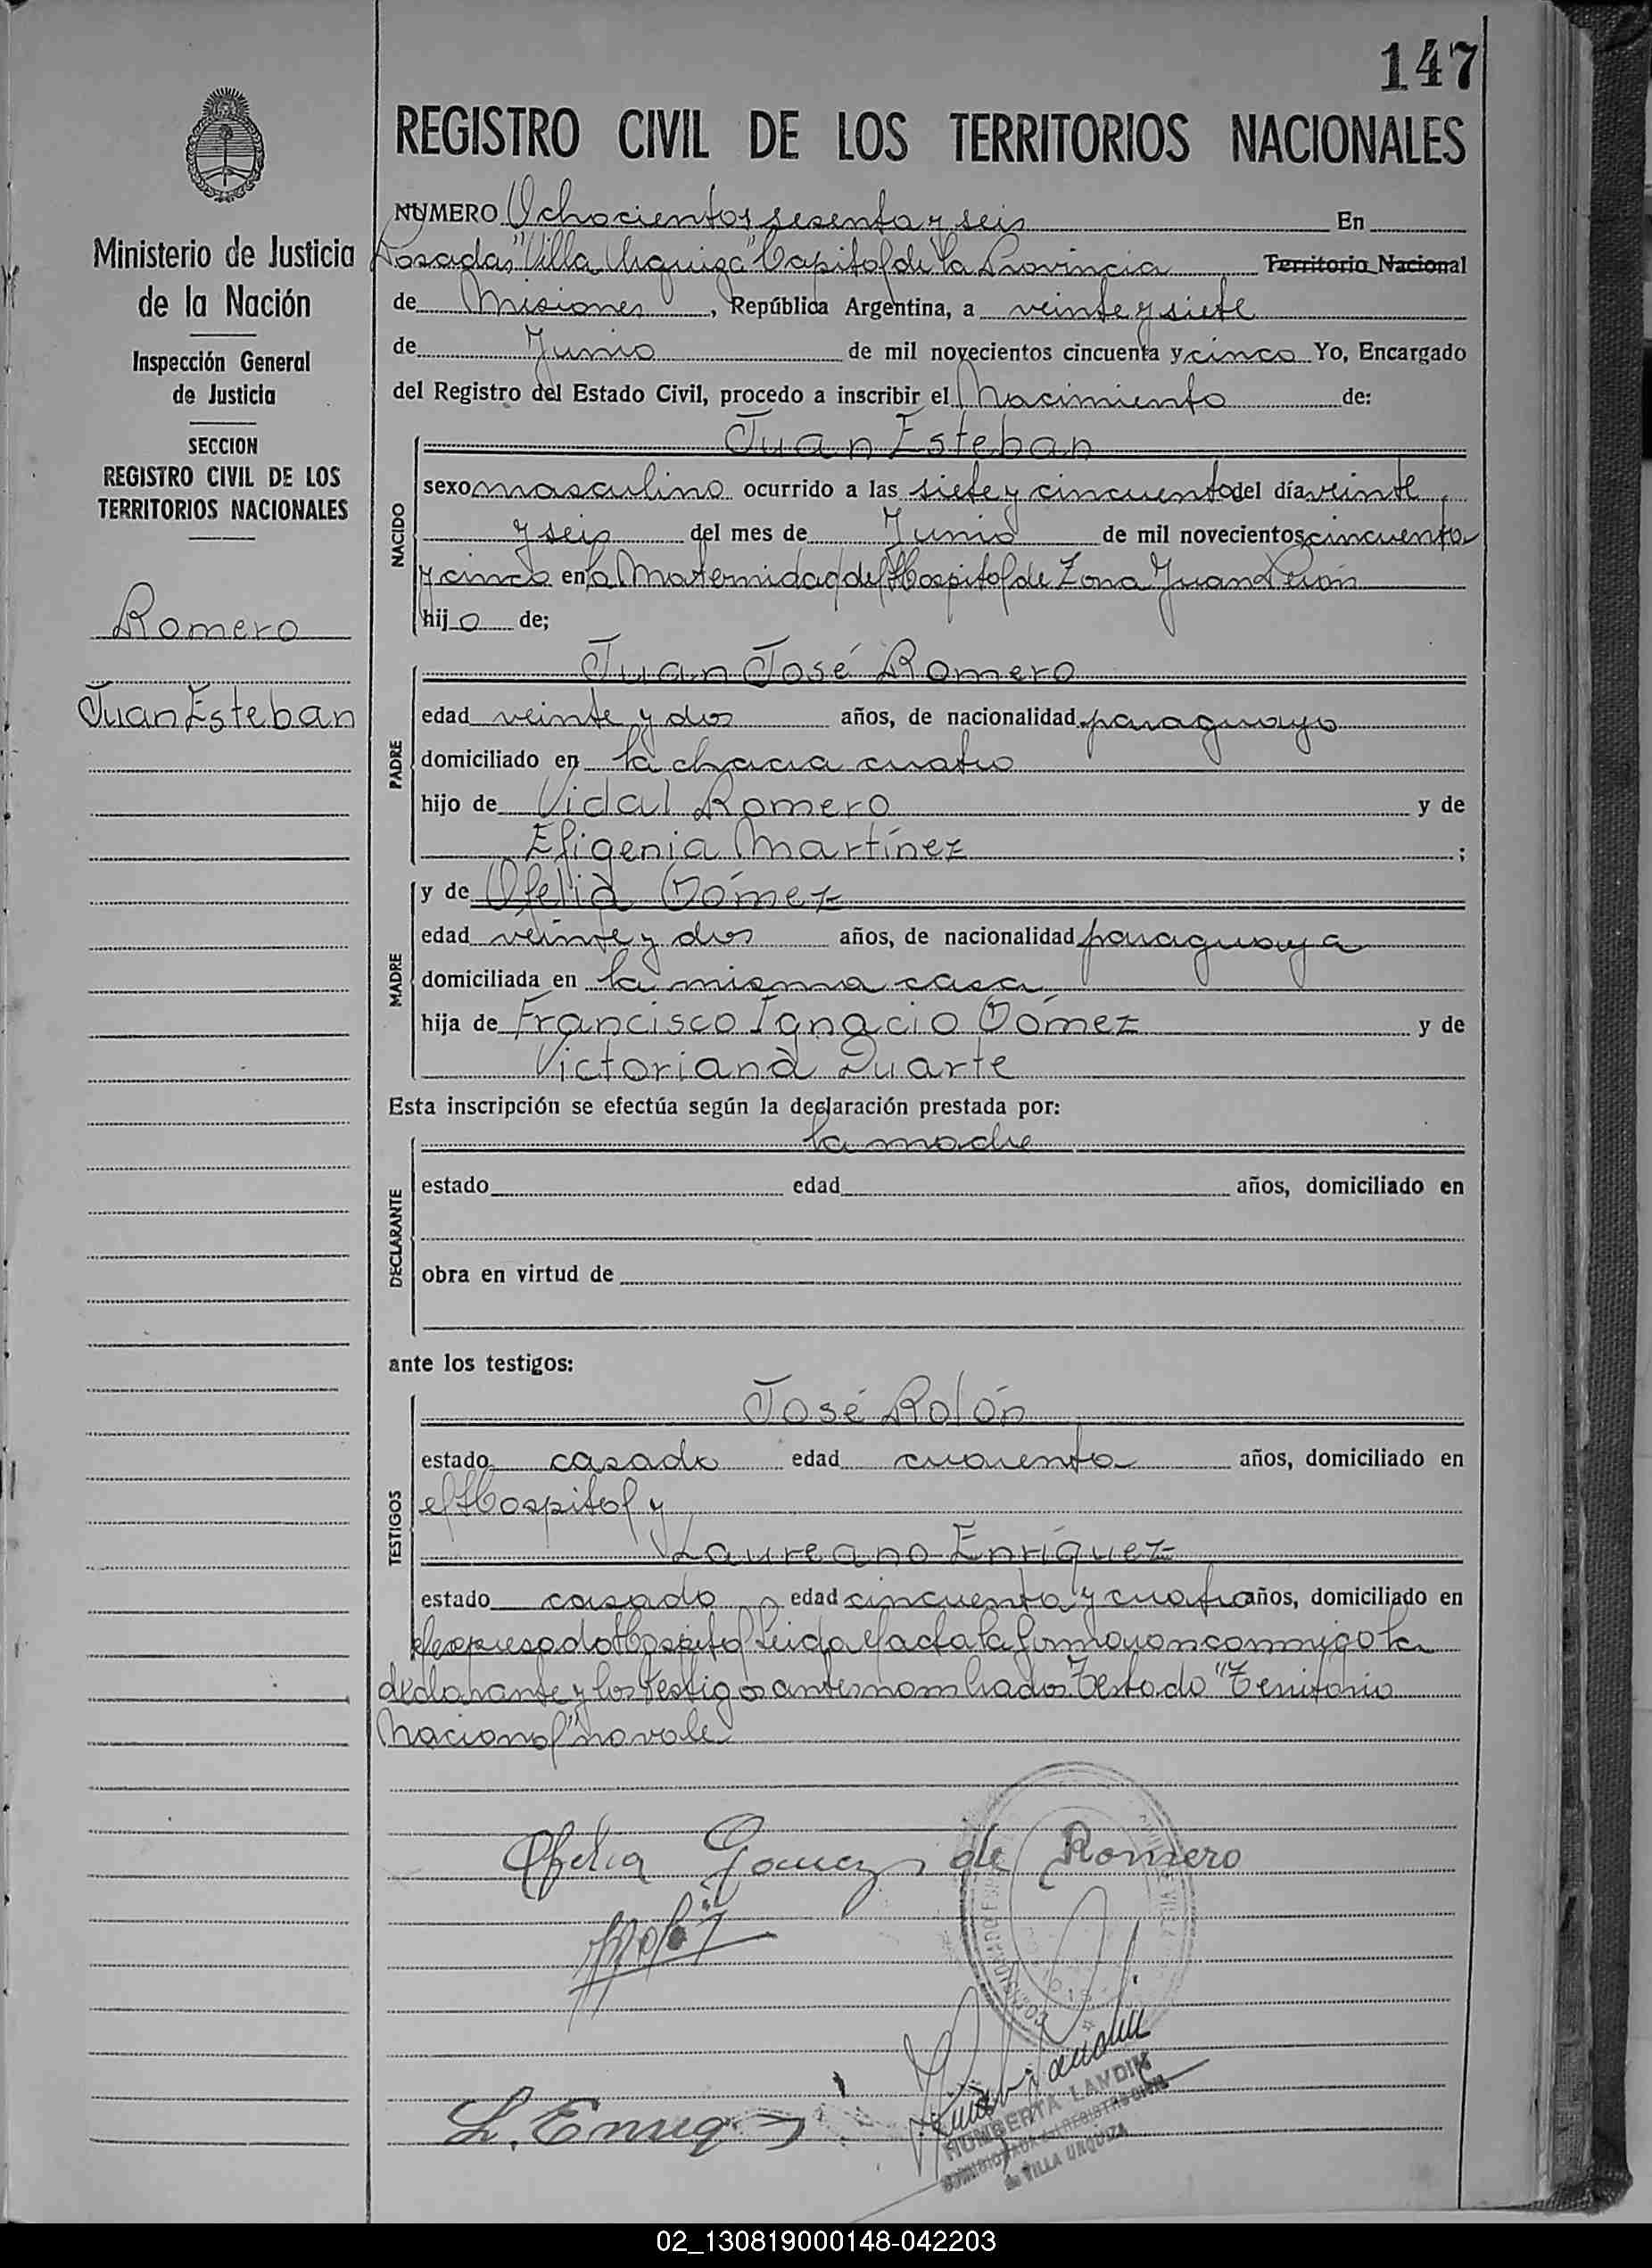 147
REGISTRO CIVIL DE LOS TERRITORIOS NACIONALES
Ministerio de Justicia
de la Nación
Inspección General
de Justicia
SECCION
REGISTRO CIVIL DE LOS
TERRITORIOS NACIONALES
Romero
Juan Esteban
NUMERO Ochocientos sesenta y seis En
Posadas "Villa Urquiza" Capital de la Provincia Territorio Nacional
de Misiones, República Argentina, a veinte y siete
de Junio de mil novecientos cincuenta y cinco Yo, Encargado
del Registro del Estado Civil, procedo a inscribir el Nacimiento de:
NACIDO
Juan Esteban
sexo masculino ocurrido a las siete y cincuenta del día veinte
y seis del mes de Junio de mil novecientos cincuenta
y cinco en la Maternidad del Hospital de Zona Juan Perón
hijo de;
PADRE
Juan José Romero
edad veinte y dos años, de nacionalidad paraguayo
domiciliado en la chacra cuatro
hijo de Vidal Romero y de
Efigenia Martínez ;
MADRE
y de Ofelia Gómez
edad veinte y dos años, de nacionalidad paraguaya
domiciliada en la misma casa
hija de Francisco Ignacio Gómez y de
Victoriana Duarte
Esta inscripción se efectúa según la declaración prestada por:
DECLARANTE
la madre
estado edad años, domiciliado en
obra en virtud de
ante los testigos:
TESTIGOS
José Rolón
estado casado edad cuarenta años, domiciliado en
el Hospital y
Laureano Enríquez
estado casado edad cincuenta y cuatro años, domiciliado en
el expresado Hospital Leida el acta la firmaron conmigo la
declarante y los testigos antes nombrados. Testado "Territorio
Nacional" no vale
Ofelia Gomez de Romero
L. Enriquez
HUMBERTA LAVDIK
de VILLA URQUIZA
02_130819000148-042203